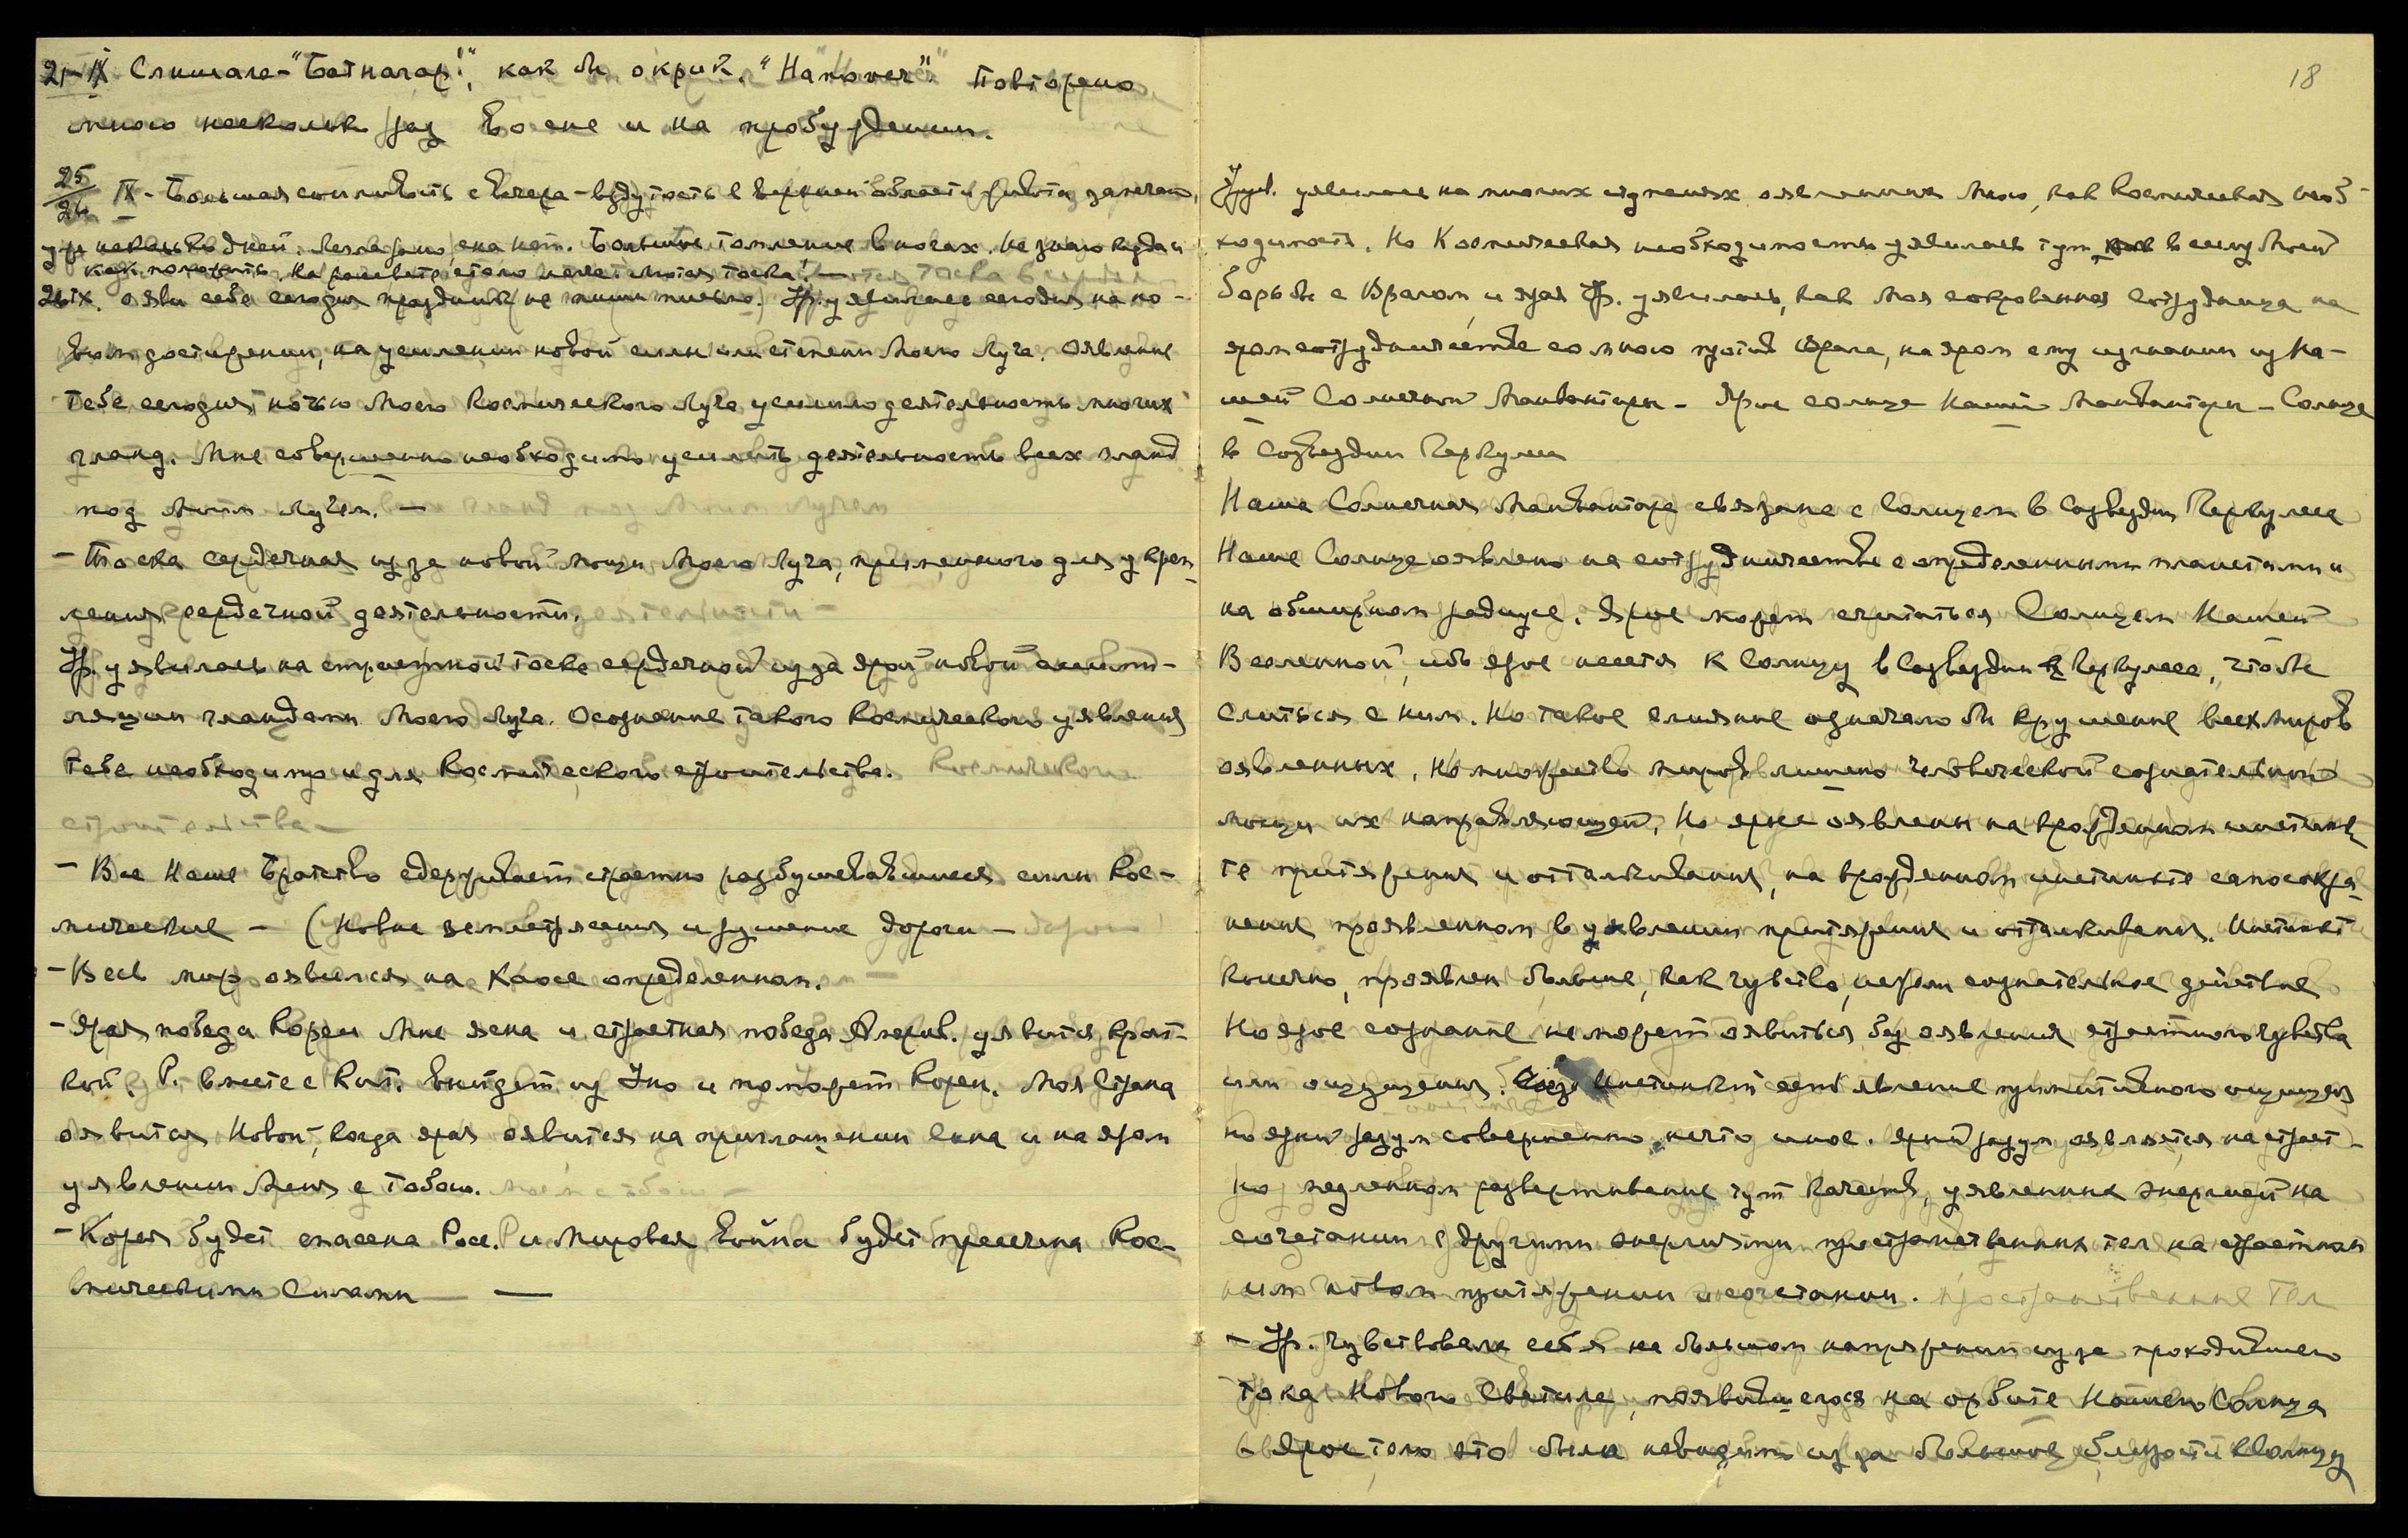 21-IX Слышала - "Батнагар!", как бы окрик. "Hannover" Повторено
мною несколько раз во сне и на пробуждении.
25/26 IX - Большая сонливость с вечера - вздутость в верхней области живота замечаю,
уже несколько дней. Легла рано, сна нет. Большое томление в ногах. Не знаю куда и
как положить. На рассвете стало легче
26 IX. Ояви себе сегодня праздник, не пиши письмо. Ур. уявилась сегодня на но-
вом достижении, на усилении новой силы или степени Моего Луча. Оявление
тебе сегодня ночью Моего Космического Луча усилило деятельность многих
гланд. Мне совершенно необходимо усилить деятельность всех гланд
под Моим Лучом. -
- Тоска сердечная из за новой мощи Моего Луча, примененного для укреп-
ления сердечной деятельности.
Ур. уявилась на страстной тоске сердечной из за ярой новой
гландами Моего Луча. Осознание такого Космического уявления
тебе необходимо и для Космического строительства. Космического
строительства -
- Все Наше Братство сдерживает страстно разбушевавшиеся силы Кос-
мические - (Новые землетрясения и рушение дороги -
- Весь мир оявился на Хаосе определенном.
- Ярая победа Кореи Мне ясна и страстная победа Америк. уявится крат-
кой. Р. вместе с Кит. выйдет из Уно и поможет Кореи. Моя Страна
оявится Новой, когда ярая оявится на приглашении Сына и на яром
уявлении Меня с тобою.
- Корея будет спасена Росс. Р и Мировая война будет пресечена Кос-
мическими Силами -
18
Урус. уявилась на многих изучениях оявленных Мною, как Космическая необ-
ходимость. Но Космическая необходимость уявилась тут в силу Моей
борьбы с Врагом и ярая Ур. уявилась, как Моя сокровенная Сотрудница на
яром сотрудничестве со мною против Врага, на яром ему изгнании из На-
шей Солнечной Манвантары - Ярое солнце нашей Манвантары - Солнце
в Созвездии Геркулеса
Наша Солнечная Манвантара связана с Солнцем в Созвездии Геркулеса
Наше Солнце оявлено на сотрудничестве с определенными планетами и
на обширном радиусе. Ярое может считаться Солнцем Нашей
Вселенной, ибо ярое несется к Солнцу в Созвездии Геркулеса, чтобы
слиться с ним. Но такое слияние означало бы крушение всех миров
оявленных. Но множество миров лишено человеческой сознательной
мощи их направляющей. Но яркие оявлены на врожденном инстинк
те притяжения и отталкивания, на врожденном инстинкте самосохра-
нения проявленном в уявлении притяжения и отталкивания. Инстинкт
конечно, проявлен больше, как чувство, нежели сознательное действие
Но ярое сознание не может оявиться без оявления страстного чувства
или ощущения. Инстинкт есть явление примитивного ощущения
но яркий разум совершенно нечто иное. Яркий разум оявляется на страст-
но медленном развертывании чут качеств, уявленных энергией на
сочетании с другими энергиями пространственных тел на страстном
ином новом притяжении и сочетании. пространственные тел
- Ур. чувствовала себя на большом напряжении из за проходившего
тока Нового Светила, появившегося на орбите Нашего Солнца
- Ярое тело это было невидимо из за большой близости к Солнцу